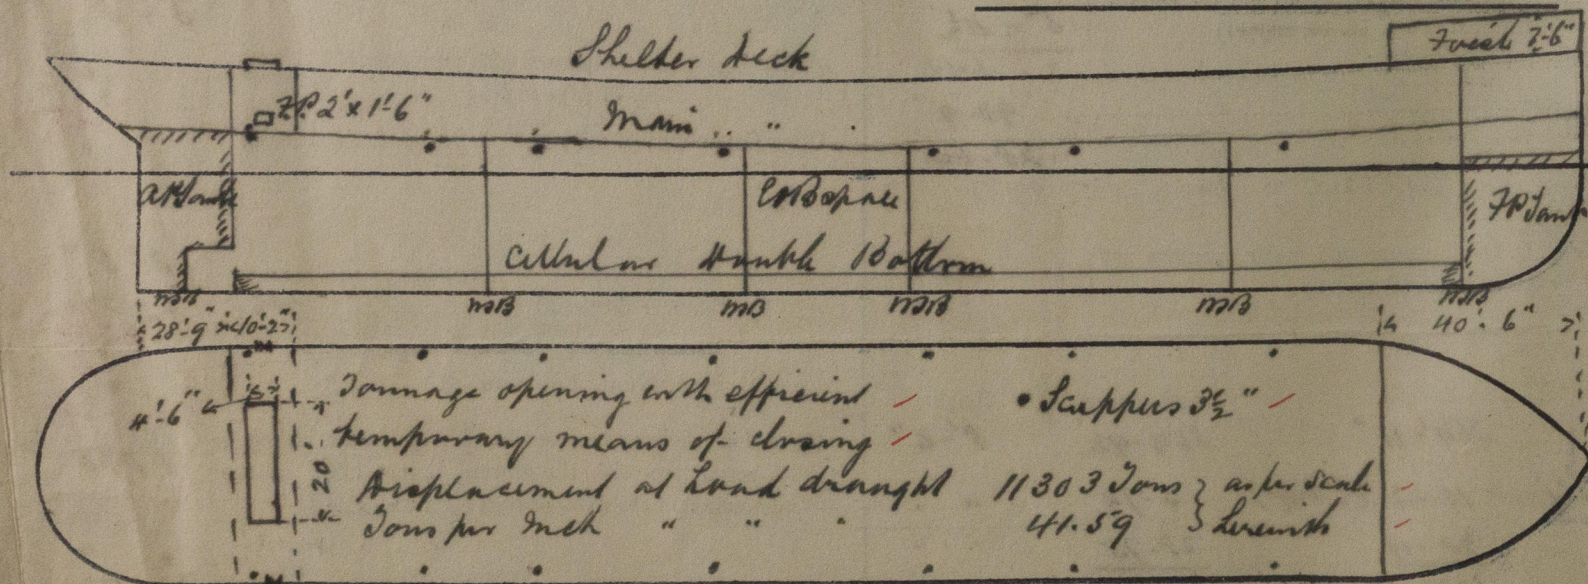 Shelter Deck
Focsle 7'-6"
F.P. 2' x 1'-6"
Main " "
A P Tank
E & B space
F P Tank
Cellular Double Bottom
WTB WTB WTB WTB WTB WTB
28'-9" 10'-2" 40'-6"
4'-6" 5'
Tonnage opening with efficient
temporary means of closing
• Scuppers 3½"
20'
Displacement at Load draught 11303 Tons } as per scale
Tons per Inch " " " 41.59 } herewith